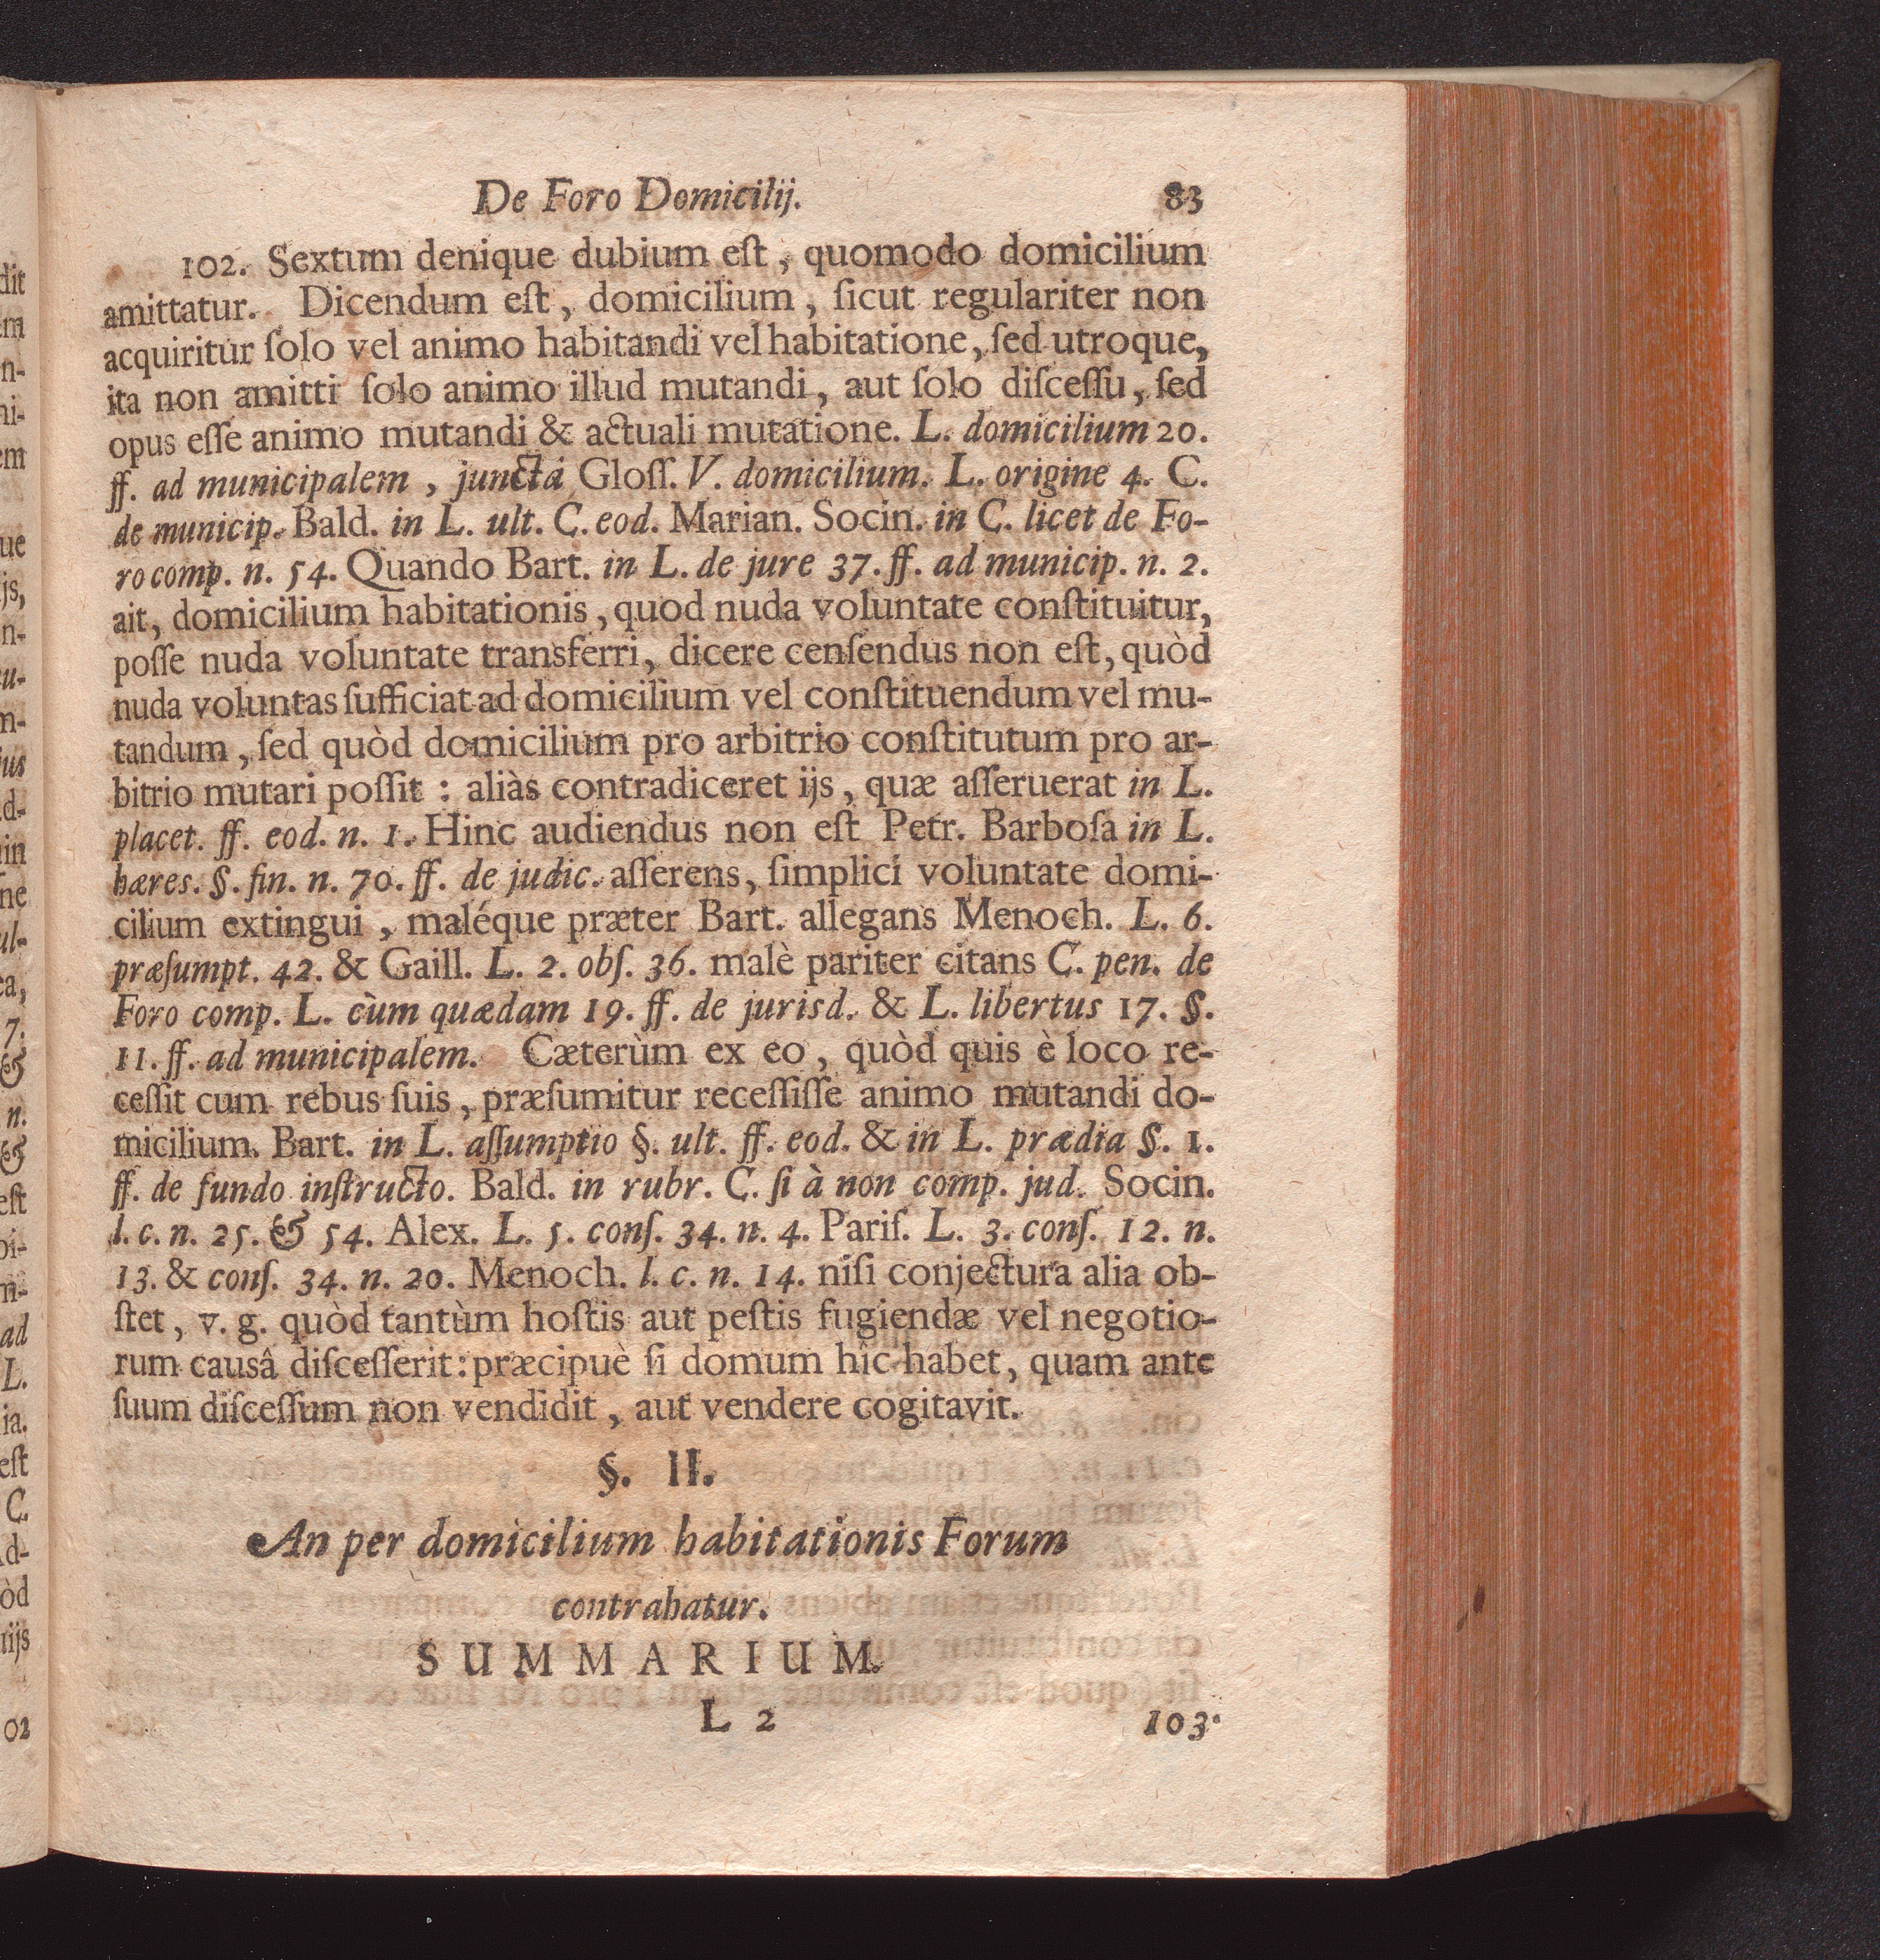 De Foro Domicilij. 83
102. Sextum denique dubium eſt, quomodo domicilium
amittatur. Dicendum eſt, domicilium, ſicut regulariter non
acquiritur ſolo vel animo habitandi vel habitatione, ſed utroque,
ita non amitti ſolo animo illud mutandi, aut ſolo diſceſſu, ſed
opus eſſe animo mutandi & actuali mutatione. L. domicilium 20.
ff. ad municipalem, junctâ Gloſſ. V. domicilium. L. origine 4. C.
de municip. Bald. in L. ult. C. eod. Marian. Socin. in C. licet de Fo-
ro comp. n. 54. Quando Bart. in L. de jure 37. ff. ad municip. n. 2.
ait, domicilium habitationis, quod nuda voluntate conſtituitur,
poſſe nuda voluntate transferri, dicere cenſendus non eſt, quòd
nuda voluntas ſufficiat ad domicilium vel conſtituendum vel mu-
tandum, ſed quòd domicilium pro arbitrio conſtitutum pro ar-
bitrio mutari poſſit: aliàs contradiceret ijs, quæ aſſeruerat in L.
placet. ff. eod. n. 1. Hinc audiendus non eſt Petr. Barboſa in L.
hæres. §. fin. n. 70. ff. de judic. aſſerens, ſimplici voluntate domi-
cilium extingui, maléque præter Bart. allegans Menoch. L. 6.
præſumpt. 42. & Gaill. L. 2. obſ. 36. malè pariter citans C. pen. de
Foro comp. L. cùm quædam 19. ff. de jurisd. & L. libertus 17. §.
11. ff. ad municipalem. Cæterùm ex eo, quòd quis è loco re-
ceſſit cum rebus ſuis, præſumitur receſſiſſe animo mutandi do-
micilium. Bart. in L. aſſumptio §. ult. ff. eod. & in L. prædia §. 1.
ff. de fundo inſtructo. Bald. in rubr. C. ſi à non comp. jud. Socin.
l. c. n. 25. & 54. Alex. L. 5. conſ. 34. n. 4. Pariſ. L. 3. conſ. 12. n.
13. & conſ. 34. n. 20. Menoch. l. c. n. 14. niſi conjectura alia ob-
ſtet, v. g. quòd tantùm hoſtis aut peſtis fugiendæ vel negotio-
rum causâ diſceſſerit: præcipuè ſi domum hîc habet, quam ante
ſuum diſceſſum non vendidit, aut vendere cogitavit.
§. II.
An per domicilium habitationis Forum
contrahatur.
SUMMARIUM.
L 2 103.